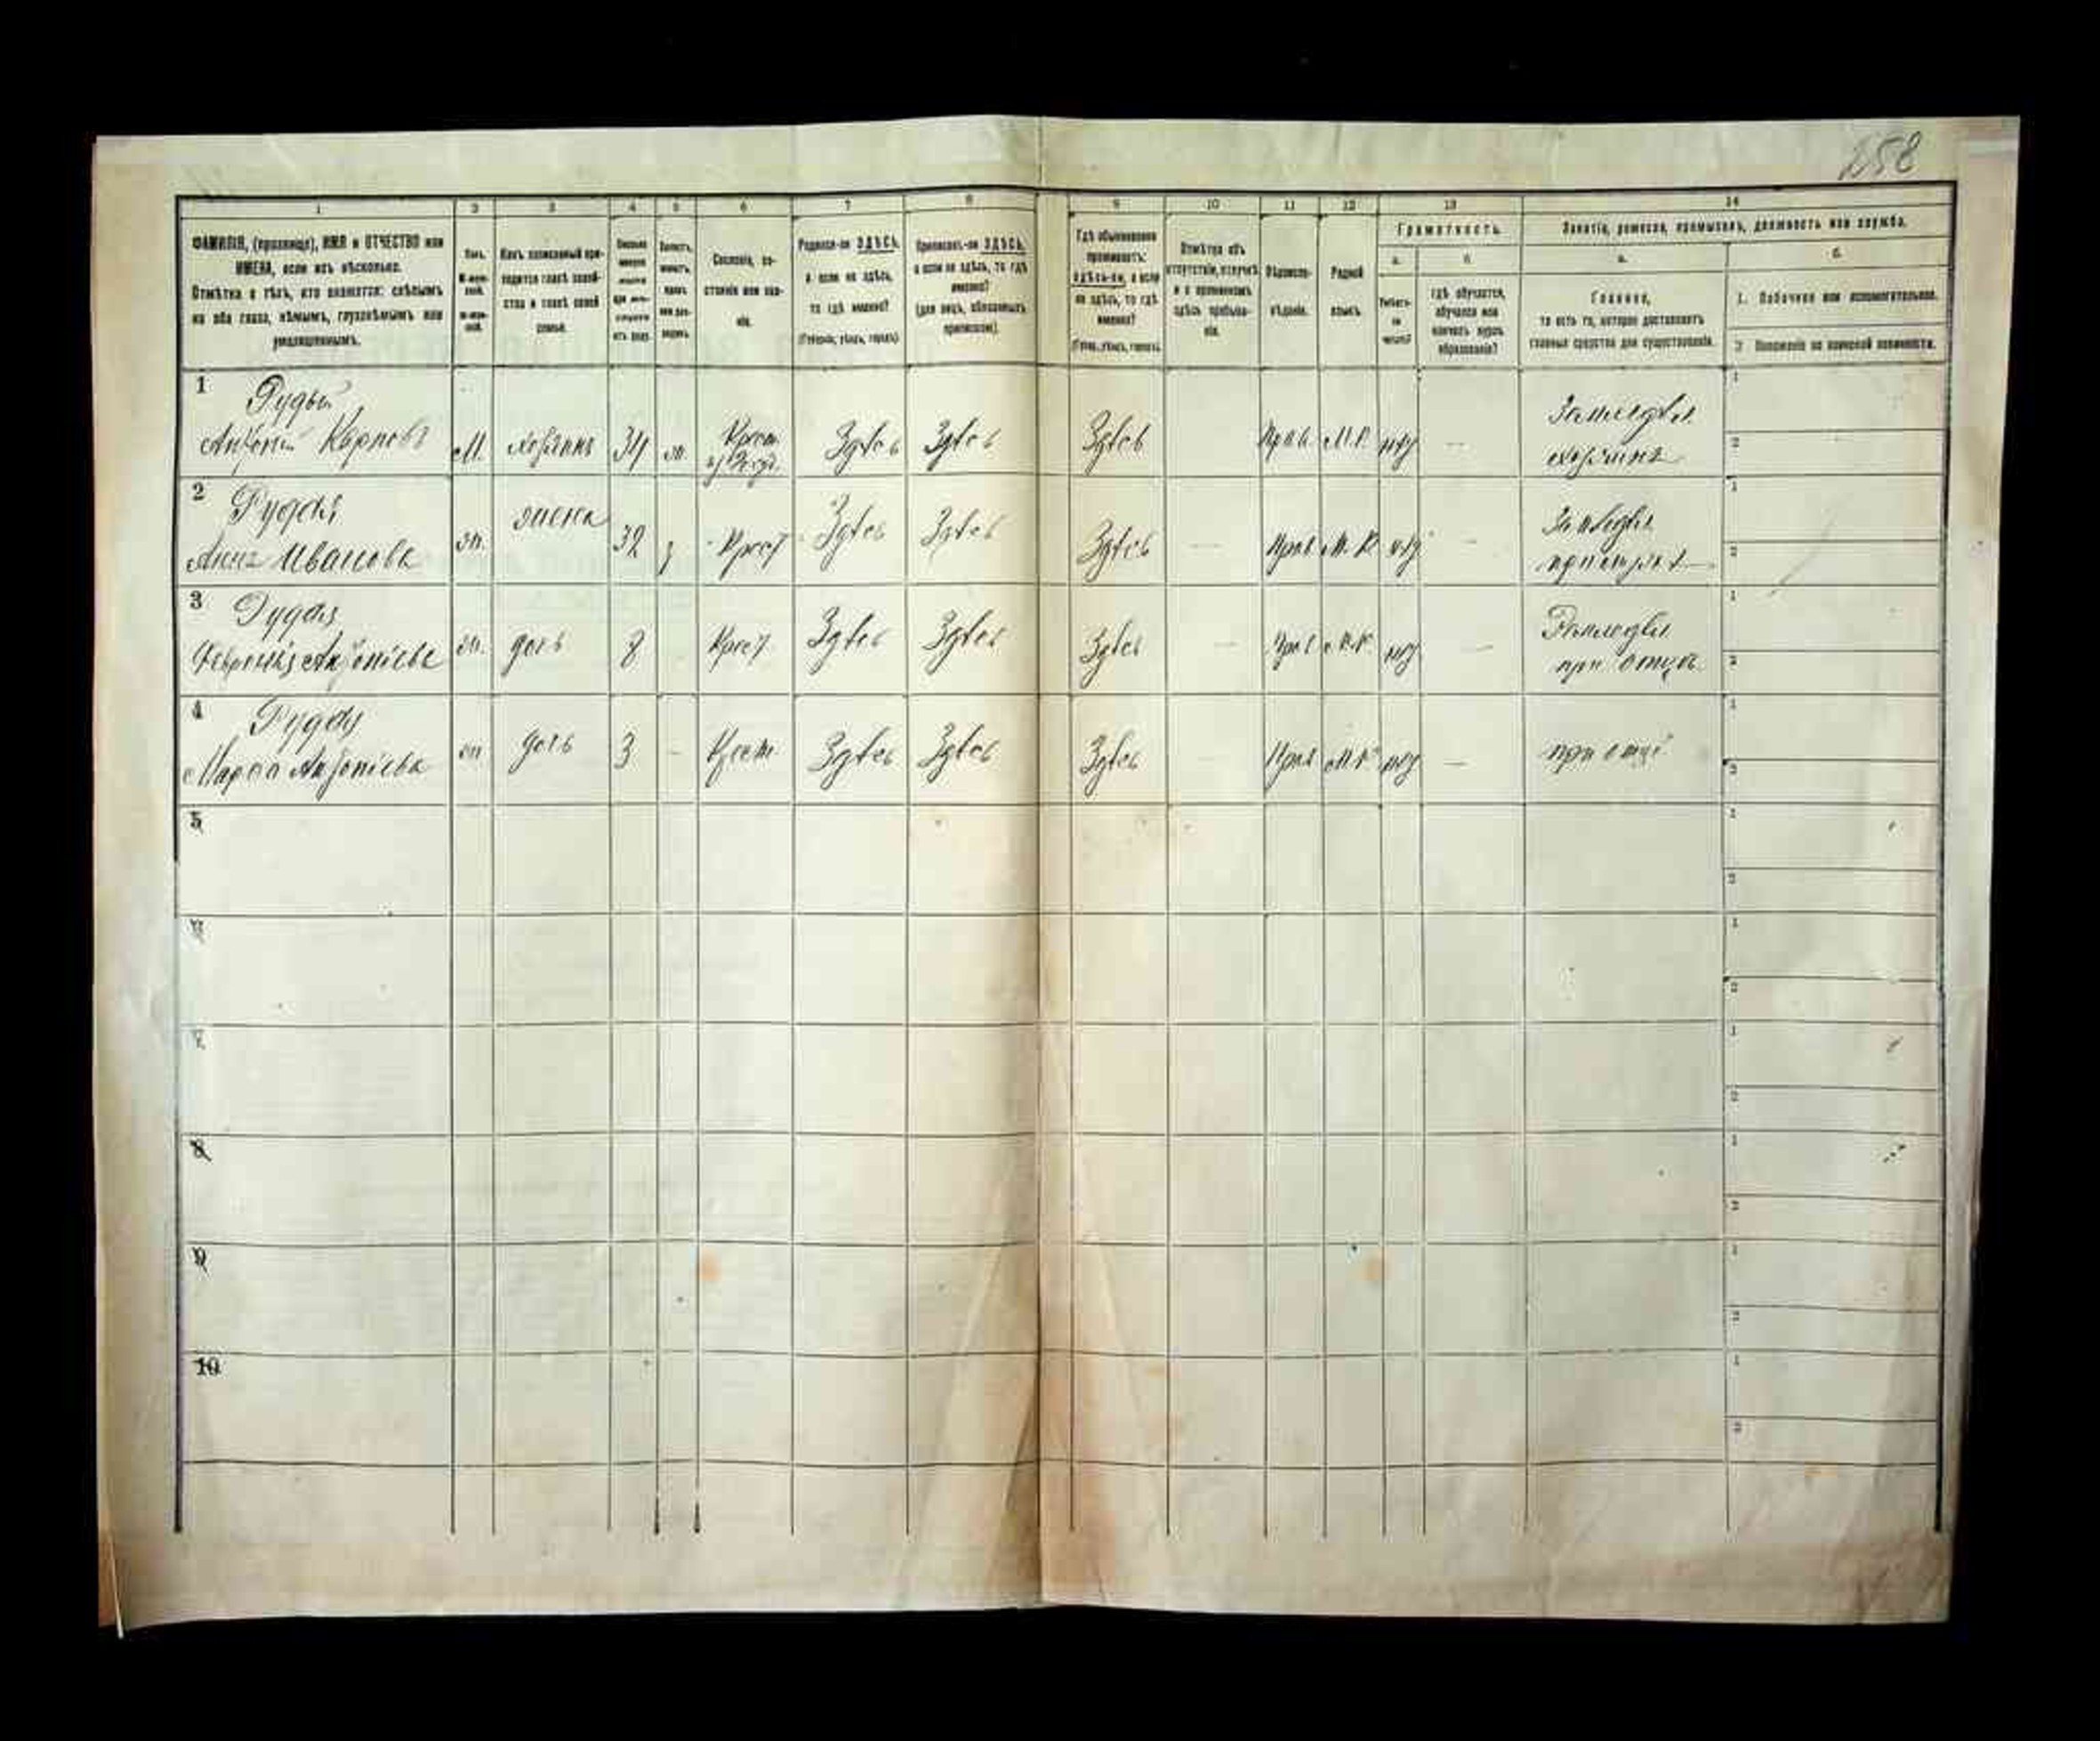 258
1 2 3 4 5 6 7 8 9 10 11 12 13 14
ФАМИЛІЯ, (прозвище), ИМЯ и ОТЧЕСТВО или
ИМЕНА, если ихъ нѣсколько.
Отмѣтка о тѣхъ, кто окажется: слѣпымъ
на оба глаза, нѣмымъ, глухонѣмымъ или
умалишеннымъ.
Полъ.
М-муж-
ской.
Ж-жен-
ской.
Какъ записанный при-
ходится главѣ хозяй-
ства и главѣ своей
семьи.
Сколько
минуло
лѣтъ
Холостъ,
женатъ,
вдовъ
или раз-
веденъ.
Сословіе, со-
стояніе или зва-
ніе.
Родился-ли ЗДѢСЬ,
а если не здѣсь,
то гдѣ именно?
(Губернія, уѣздъ, городъ)
Приписанъ-ли ЗДѢСЬ,
а если не здѣсь, то гдѣ
именно?
(для лицъ, обязанныхъ
припискою).
Гдѣ обыкновенно
проживаетъ:
здѣсь-ли, а если
не здѣсь, то гдѣ
именно?
(Губер., уѣздъ, городъ).
Отмѣтка объ
отсутствіи, отлучкѣ
и о временномъ
здѣсь пребыва-
ніи.
Вѣроиспо-
вѣданіе.
Родной
языкъ.
Грамотность.
а.
Умѣетъ-
ли
читать?
б.
гдѣ обучается,
обучался или
кончилъ курсъ
образованія?
Занятіе, ремесло, промыселъ, должность или служба.
а.
Главное,
то есть то, которое доставляетъ
главныя средства для существованія.
б.
1. Побочное или вспомогательное.
2. Положеніе по воинской повинности.
1 Рудый
Антоній Карповъ М. хозяинъ 34 ж. Крест. Здѣсь Здѣсь Здѣсь Прав. М.Р. нѣт — Земледѣл.
хозяинъ
2 Рудая
Анна Иванова ж. жена 32 Крест Здѣсь Здѣсь Здѣсь — Прав М.Р. нѣт - Земледѣл
при мужѣ
3 Рудая
Февронія Антоніева ж. дочь 8 Крест Здѣсь Здѣсь Здѣсь — Прав М.Р. нѣт — Земледѣл
при отцѣ
4 Рудая
Марѳа Антоніева ж дочь 3 - Крест Здѣсь Здѣсь Здѣсь Прав М.Р. нѣт — при отцѣ
5
6
7
8
9
10